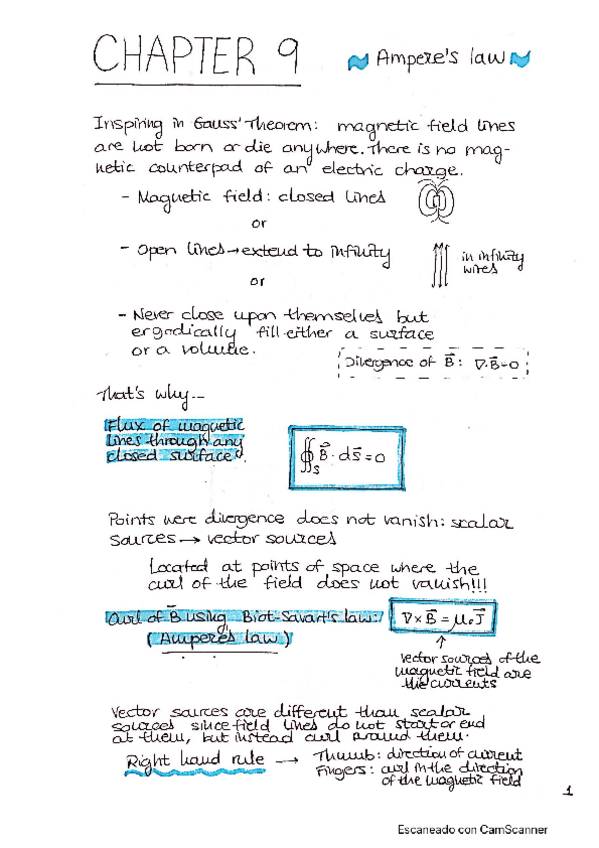 CHAPTER 9
Ampere's law
Inspiring in Gauss' Theorem: magnetic field lines
are not born or die anywhere. There is no mag-
netic counterpad of an electric charge.
- Magnetic field: closed lines
or
- Open lines → extend to infinity
in infinity
wires
or
- Never close upon themselves but
ergodically fill either a surface
or a volume.
Divergence of B⃗: ∇·B⃗=0
That's why...
Flux of magnetic
lines through any
closed surface.
∯_S B⃗ · ds⃗ = 0
Points were divergence does not vanish: scalar
sources → vector sources
Located at points of space where the
curl of the field does not vanish!!!
Curl of B⃗ using Biot-Savart's law:
(Ampere's law)
∇ × B⃗ = μ₀ J⃗
↑
vector sources of the
magnetic field are
the currents
Vector sources are different than scalar
sources since field lines do not start or end
at them, but instead curl around them.
Right hand rule → Thumb: direction of current
Fingers: curl in the direction
of the magnetic field
1
Escaneado con CamScanner